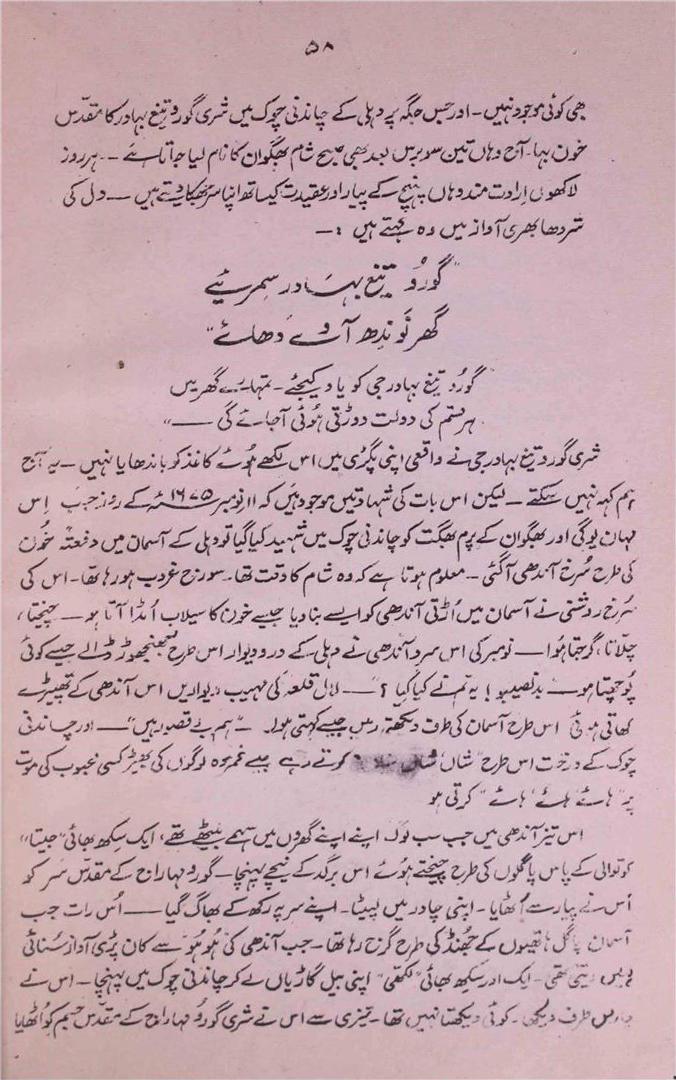 ۵۸
بھی کوئی موجود نہیں ۔ اور جس جگہ پر دہلی کے چاندنی چوک میں شری گورو تیغ بہادر کا مقدّس
خون بہا۔ آج وہاں تین سو برس بعد بھی صبح شام بھگوان کا نام لیا جاتا ہے ۔۔ ہر روز
لاکھوں اِرادت مند وہاں پہنچ کے پیار اور عقیدت کیساتھ اپنا سر جھکا دیتے ہیں ۔۔ دل کی
شردھا بھری آواز میں وہ کہتے ہیں :۔
"گورُو تیغ بہادر سِمرئیے
گھر نَو نِدھ آوے دھائے"
"گورُو تیغ بہادر جی کو یاد کیجئے ۔ تمہارے گھر میں
ہر قسم کی دولت دوڑتی ہُوئی آجائے گی ۔۔"
شری گورو تیغ بہادر جی نے واقعی اپنی پگڑی میں اس لکھے ہُوئے کاغذ کو باندھا یا نہیں ۔ یہ آج
ہم کہہ نہیں سکتے ۔ لیکن اس بات کی شہادتیں موجود ہیں کہ ۱۱ نومبر ۱۶۷۵ء کے روز جب اِس
مہان یوگی اور بھگوان کے پرم بھگت کو چاندنی چوک میں شہید کیا گیا تو دہلی کے آسمان میں دفعتہً خُون
کی طرح سُرخ آندھی آگئی ۔ معلوم ہوتا ہے کہ وہ شام کا وقت تھا۔ سورج غروب ہو رہا تھا۔ اس کی
سُرخ روشنی نے آسمان میں اُڑتی آندھی کو ایسے بنا دیا جیسے خون کا سیلاب اُمڈا آتا ہو ۔۔ چیختا،
چلّاتا، گرجتا ہوا ۔۔ نومبر کی اس سرد آندھی نے دہلی کے درو دیوار اس طرح جھنجھوڑ ڈالے جیسے کوئی
پُوچھتا ہو ۔ بدنصیبو! یہ تم نے کیا کیا؟" ۔۔ لال قلعہ کی مہیب دیواریں اس آندھی کے تھپیڑے
کھاتی ہوئی اس طرح آسمان کی طرف دیکھتی رہیں جیسے کہتی ہوں۔ "ہم بے قصور ہیں" ۔۔ اور چاندنی
چوک کے درخت اس طرح "شاں شاں" کرتے رہے جیسے غمزدہ لوگوں کی بھیڑ کسی محبوب کی موت
پر "ہائے ہائے ہائے" کرتی ہو
اس تیز آندھی میں جب سب لوگ اپنے اپنے گھروں میں سہمے بیٹھے تھے، ایک سِکھ بھائی "جیتا"
کوتوالی کے پاس پاگلوں کی طرح چیختے ہُوئے اس برگد کے نیچے پہنچا ۔ گورو مہاراج کے مقدس سر کو
اُس نے پیار سے اُٹھایا ۔ اپنی چادر میں لپیٹا ۔ اپنے سر پر رکھ کے بھاگ گیا ۔۔ اُس رات جب
آسمان پاگل ہاتھیوں کے جھُنڈ کی طرح گرج رہا تھا ۔ جب آندھی کی ہُو ہُو سے کان پڑی آواز سُنائی
نہیں دیتی تھی ۔ ایک اور سِکھ بھائی "لکھی" اپنی بیل گاڑیاں لے کر چاندنی چوک میں پہنچا ۔ اس نے
چاروں طرف دیکھا ۔ کوئی دیکھتا نہیں تھا ۔ تیزی سے اس نے شری گورو مہاراج کے مقدس جسم کو اُٹھایا